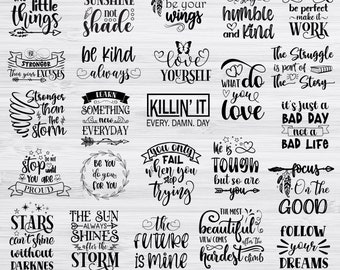 little things
SUNSHINE
not
SHADE
be your
wings
humble
and kind
be perfect
make it
WORK
STRONGER
Than your EXCUSES
be kind
always
LOVE
YOURSELF
what
do you
love
The Struggle
is part of
The Story
Stronger
than
the
storm
LEARN
SOMETHING
new
EVERYDAY
KILLIN' IT
EVERY. DAMN. DAY
YOU ONLY
FAIL
when you
stop
trying
it's just a
BAD DAY
not a
BAD LIFE
do not
stop
until
you are
PROUD
BE YOU
do you
FOR YOU
life is
TOUGH
but so are
you
focus
On the
GOOD
STARS
can't shine
without
DARKNES
THE SUN
ALWAYS
SHINES
after the
STORM
the
FUTURE
is mine
THE MOST
beautiful
VIEW COMES
after the
hardest
climb
FOLLOW
your
DREAMS